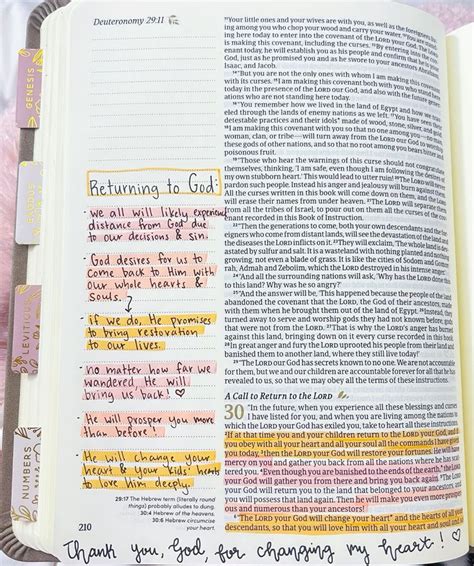 Deuteronomy 29:11
GENESIS
EXODUS
LEVITICUS
NUMBERS
Returning to God:
- we all will likely experience
distance from God due
to our decisions & sin.
- God desires for us to
come back to Him with
our whole hearts &
souls.
if we do, He promises
to bring restoration
to our lives.
- no matter how far we
wandered, He will
bring us back! ♡
- He will prosper you more
than before!
- He will change your
heart & your kids' hearts
to love Him deeply.
29:17 The Hebrew term (literally round
things) probably alludes to dung.
30:4 Hebrew of the heavens.
30:6 Hebrew circumcise
your heart.
210
¹¹Your little ones and your wives are with you, as well as the foreigners liv-
ing among you who chop your wood and carry your water. ¹²You are stand-
ing here today to enter into the covenant of the LORD your God. The LORD
is making this covenant, including the curses. ¹³By entering into the cov-
enant today, he will establish you as his people and confirm that he is your
God, just as he promised you and as he swore to your ancestors Abraham,
Isaac, and Jacob.
¹⁴"But you are not the only ones with whom I am making this covenant
with its curses. ¹⁵I am making this covenant both with you who stand here
today in the presence of the LORD our God, and also with the future gener-
ations who are not standing here today.
¹⁶"You remember how we lived in the land of Egypt and how we trav-
eled through the lands of enemy nations as we left. ¹⁷You have seen their
detestable practices and their idols* made of wood, stone, silver, and gold.
¹⁸I am making this covenant with you so that no one among you—no man,
woman, clan, or tribe—will turn away from the LORD our God to worship
these gods of other nations, and so that no root among you bears bitter and
poisonous fruit.
¹⁹"Those who hear the warnings of this curse should not congratulate
themselves, thinking, 'I am safe, even though I am following the desires of
my own stubborn heart.' This would lead to utter ruin! ²⁰The LORD will never
pardon such people. Instead his anger and jealousy will burn against them.
All the curses written in this book will come down on them, and the LORD
will erase their names from under heaven. ²¹The LORD will separate them
from all the tribes of Israel, to pour out on them all the curses of the cov-
enant recorded in this Book of Instruction.
²²"Then the generations to come, both your own descendants and the for-
eigners who come from distant lands, will see the devastation of the land and
the diseases the LORD inflicts on it. ²³They will exclaim, 'The whole land is dev-
astated by sulfur and salt. It is a wasteland with nothing planted and nothing
growing, not even a blade of grass. It is like the cities of Sodom and Gomor-
rah, Admah and Zeboiim, which the LORD destroyed in his intense anger.'
²⁴"And all the surrounding nations will ask, 'Why has the LORD done this
to this land? Why was he so angry?'
²⁵"And the answer will be, 'This happened because the people of the land
abandoned the covenant that the LORD, the God of their ancestors, made
with them when he brought them out of the land of Egypt. ²⁶Instead, they
turned away to serve and worship gods they had not known before, gods
that were not from the LORD. ²⁷That is why the LORD's anger has burned
against this land, bringing down on it every curse recorded in this book.
²⁸In great anger and fury the LORD uprooted his people from their land and
banished them to another land, where they still live today!'
²⁹"The LORD our God has secrets known to no one. We are not accountable
for them, but we and our children are accountable forever for all that he has
revealed to us, so that we may obey all the terms of these instructions.
A Call to Return to the LORD
30 "In the future, when you experience all these blessings and curses
I have listed for you, and when you are living among the nations to
which the LORD your God has exiled you, take to heart all these instructions.
²If at that time you and your children return to the LORD your God, and if
you obey with all your heart and all your soul all the commands I have given
you today, ³then the LORD your God will restore your fortunes. He will have
mercy on you and gather you back from all the nations where he has scat-
tered you. ⁴Even though you are banished to the ends of the earth,* the LORD
your God will gather you from there and bring you back again. ⁵The LORD
your God will return you to the land that belonged to your ancestors, and
you will possess that land again. Then he will make you even more prosper-
ous and numerous than your ancestors!
⁶"The LORD your God will change your heart* and the hearts of all your
descendants, so that you will love him with all your heart and soul and so
Thank you, God, for changing my heart! ♡